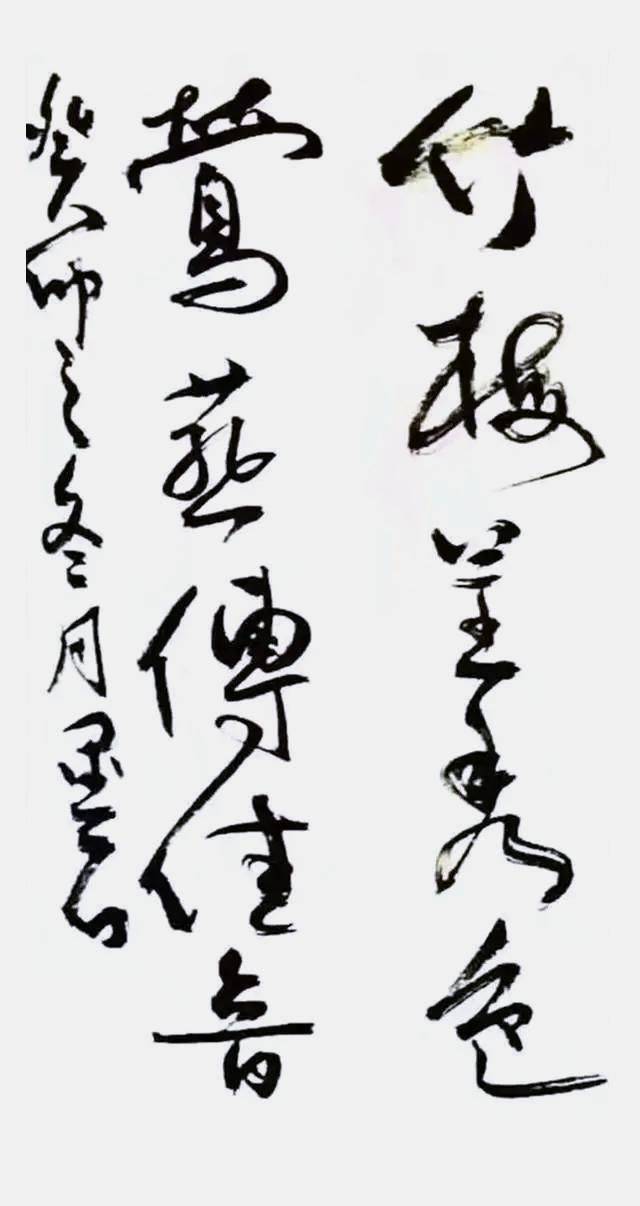 竹梅呈秀色
鶯燕傳佳音
癸卯之冬月墨白